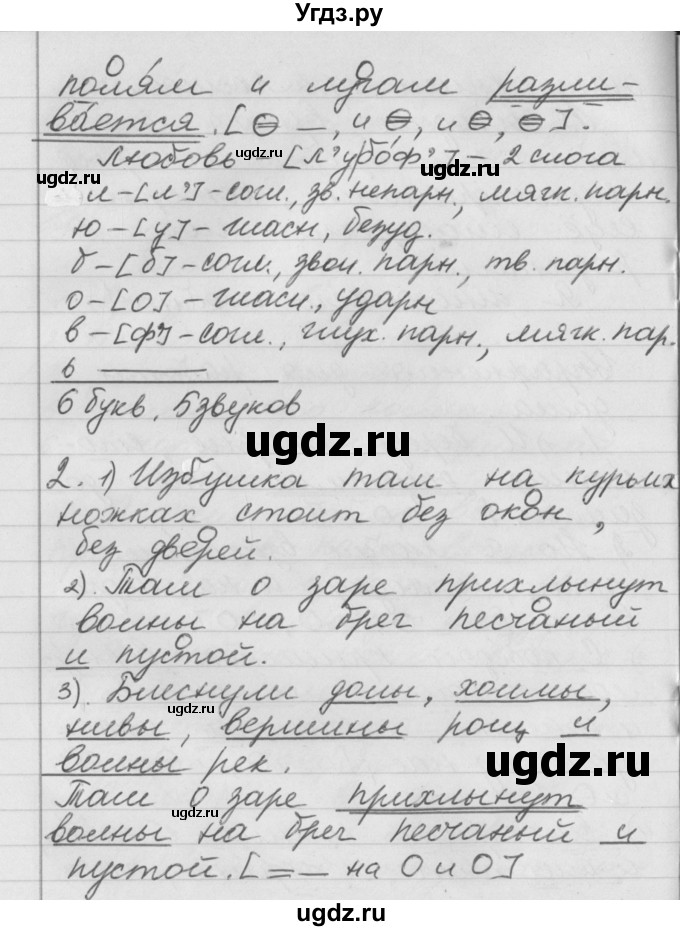 Угдз.ру
полям и лугам разли-
вается. [⊖ —, и ⊖, и ⊖, ⊖].
Любовь - [л'убо́ф'] - 2 слога
л - [л'] - согл., зв. непарн., мягк. парн.
ю - [у] - гласн, безуд.
б - [б] - согл., звон. парн., тв. парн.
о - [о] - гласн., ударн
в - [ф'] - согл., глух. парн., мягк. пар.
ь ———
6 букв, 5 звуков
2. 1) Избушка там на курьих
ножках стоит без окон,
без дверей.
2). Там о заре прихлынут
волны на брег песчаный
и пустой.
3). Блеснули долы, холмы,
нивы, вершины рощ и
волны рек.
Там о заре прихлынут
волны на брег песчаный и
пустой. [= — на О и О]
ugdz.ru
ugdz.ru
ugdz.ru
ugdz.ru
ugdz.ru
ugdz.ru
ugdz.ru
ugdz.ru
ugdz.ru
ugdz.ru